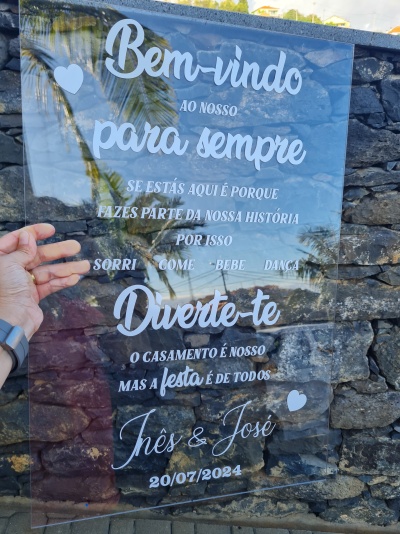 Bem-vindo
AO NOSSO
para sempre
SE ESTÁS AQUI É PORQUE
FAZES PARTE DA NOSSA HISTÓRIA
POR ISSO
SORRI COME BEBE DANÇA
Diverte-te
O CASAMENTO É NOSSO
MAS A festa É DE TODOS
Inês & José
20/07/2024